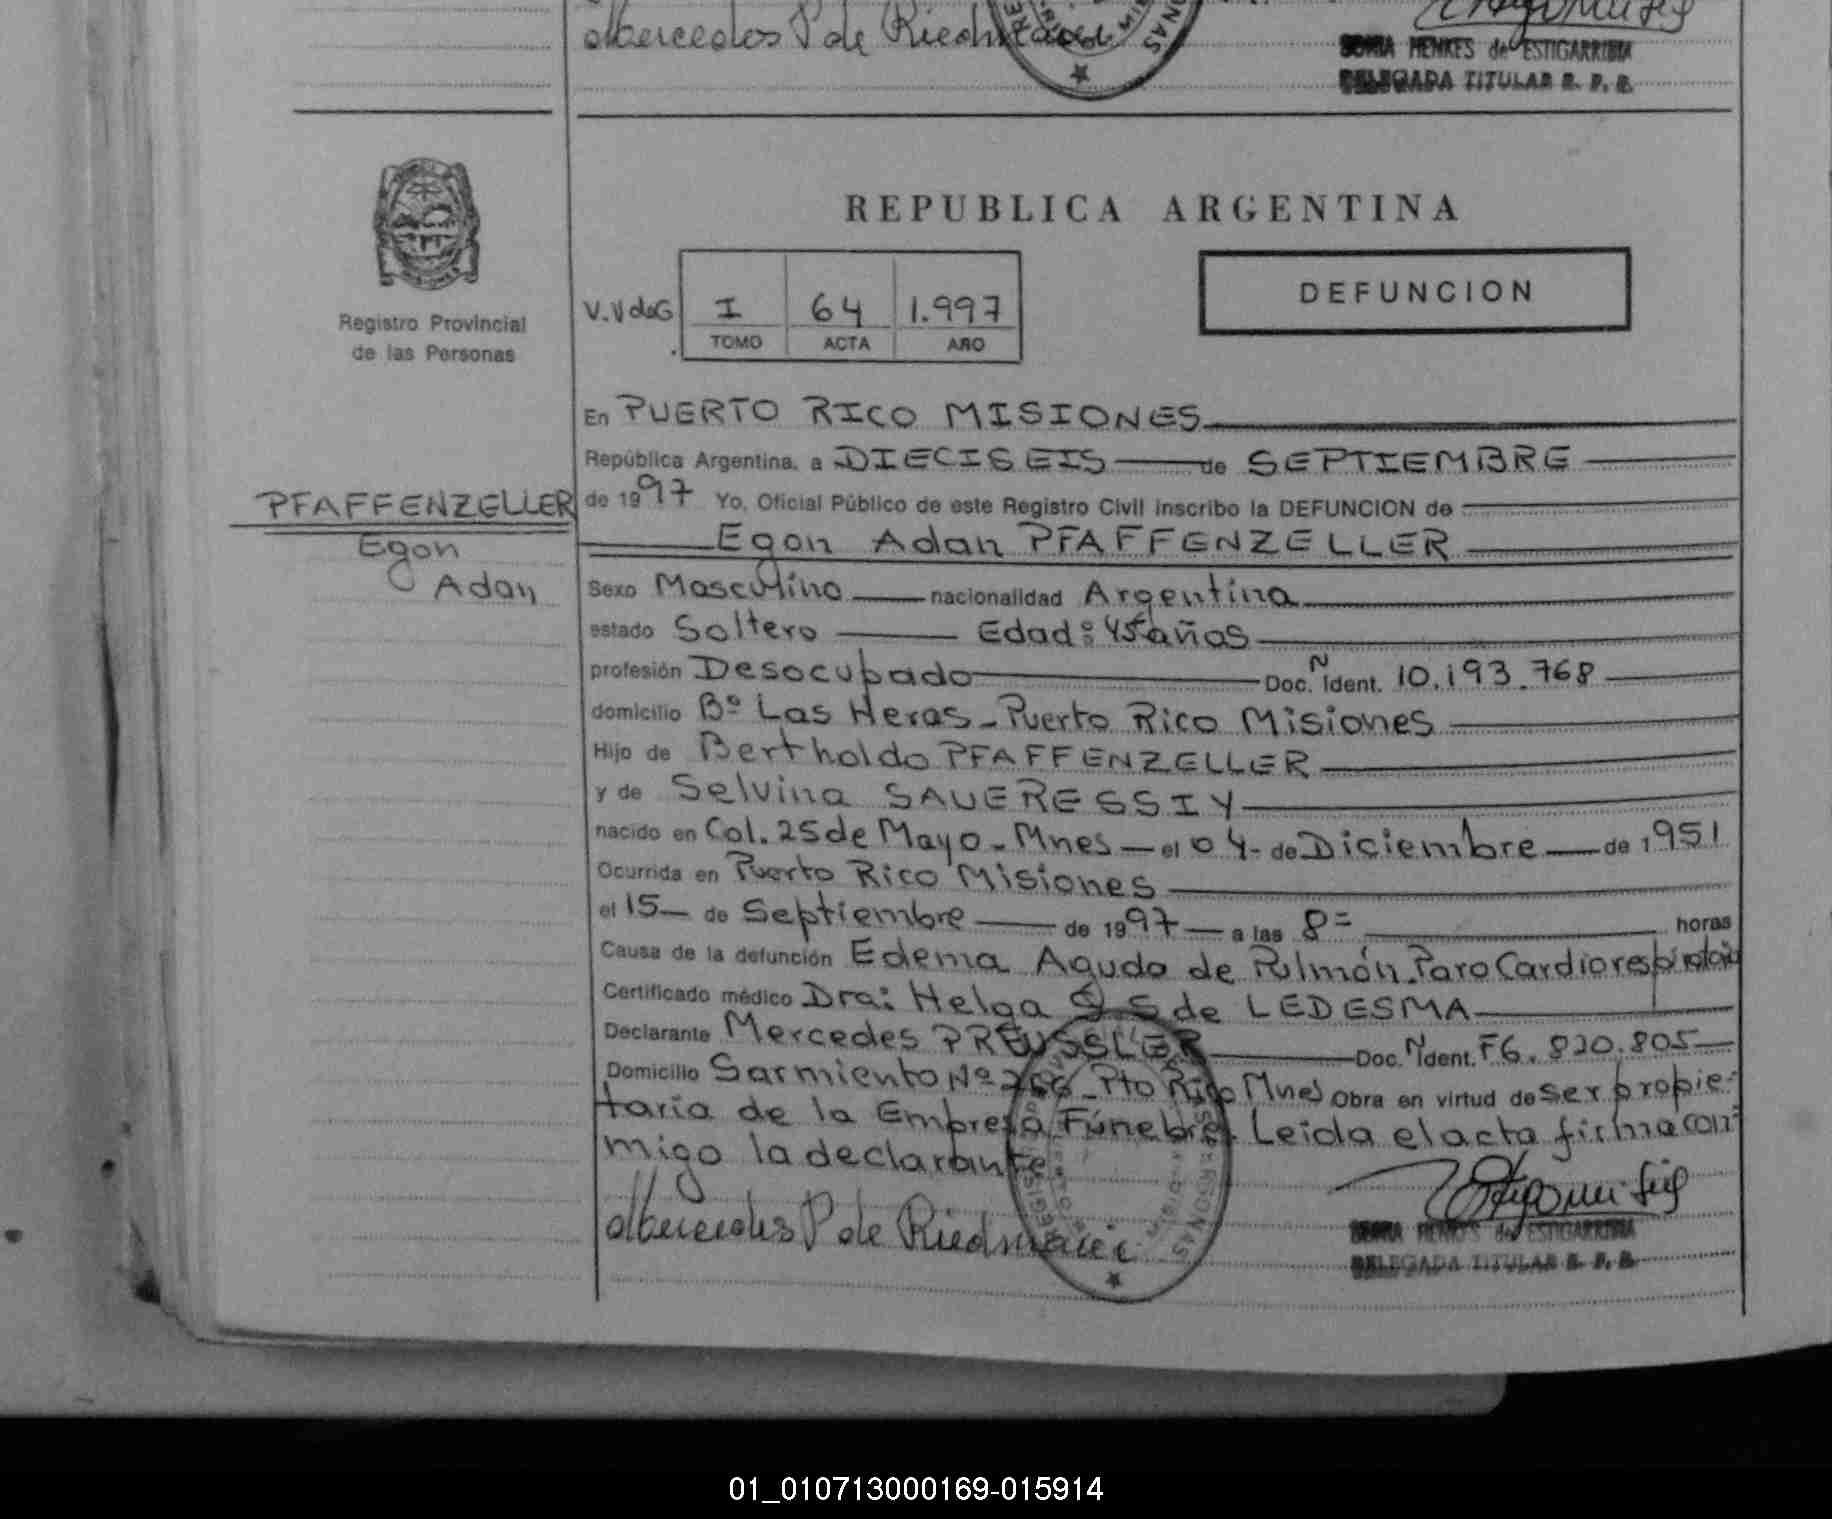 Mercedes P de Riedmaier
SONIA HENKES de ESTIGARRIBIA
DELEGADA TITULAR R. P. P.
REPUBLICA ARGENTINA
DEFUNCION
V.V de G I 64 1.997
TOMO ACTA AÑO
Registro Provincial
de las Personas
En PUERTO RICO MISIONES
República Argentina, a DIECISEIS de SEPTIEMBRE
PFAFFENZELLER
Egon
Adan
de 1997 Yo, Oficial Público de este Registro Civil inscribo la DEFUNCION de
Egon Adan PFAFFENZELLER
Sexo Masculino nacionalidad Argentina
estado Soltero Edad: 45 años
profesión Desocupado Doc. N Ident. 10.193.768
domicilio Bº Las Heras - Puerto Rico Misiones
Hijo de Bertholdo PFAFFENZELLER
y de Selvina SAUERESSIY
nacido en Col. 25 de Mayo - Mnes - el 04 - de Diciembre de 1951
Ocurrida en Puerto Rico Misiones
el 15 de Septiembre de 1997 a las 8= horas
Causa de la defunción Edema Agudo de Pulmón. Paro Cardiorespiratorio
Certificado médico Dra: Helga S de LEDESMA
Declarante Mercedes PREUSSLER Doc. N Ident. F6.820.805
Domicilio Sarmiento Nº 266 - Pto Rico Mnes Obra en virtud de ser propie-
taria de la Empresa Fúnebre. Leida el acta firma con-
migo la declarante
Mercedes P de Riedmaier
SONIA HENKES de ESTIGARRIBIA
DELEGADA TITULAR R. P. P.
01_010713000169-015914